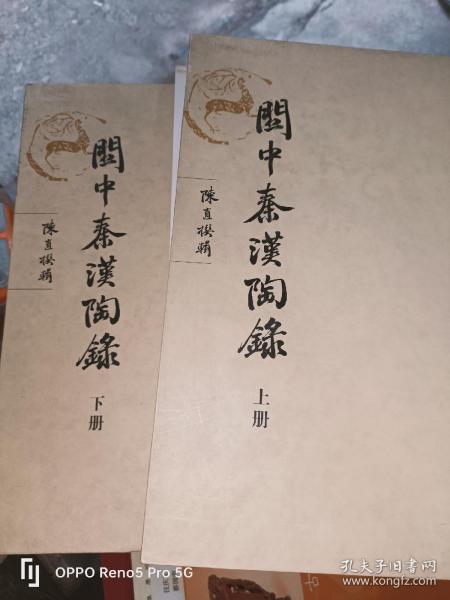 關中秦漢陶錄
陳直撰輯
下册
關中秦漢陶錄
陳直撰輯
上册
OPPO Reno5 Pro 5G
孔夫子旧书网
www.kongfz.com